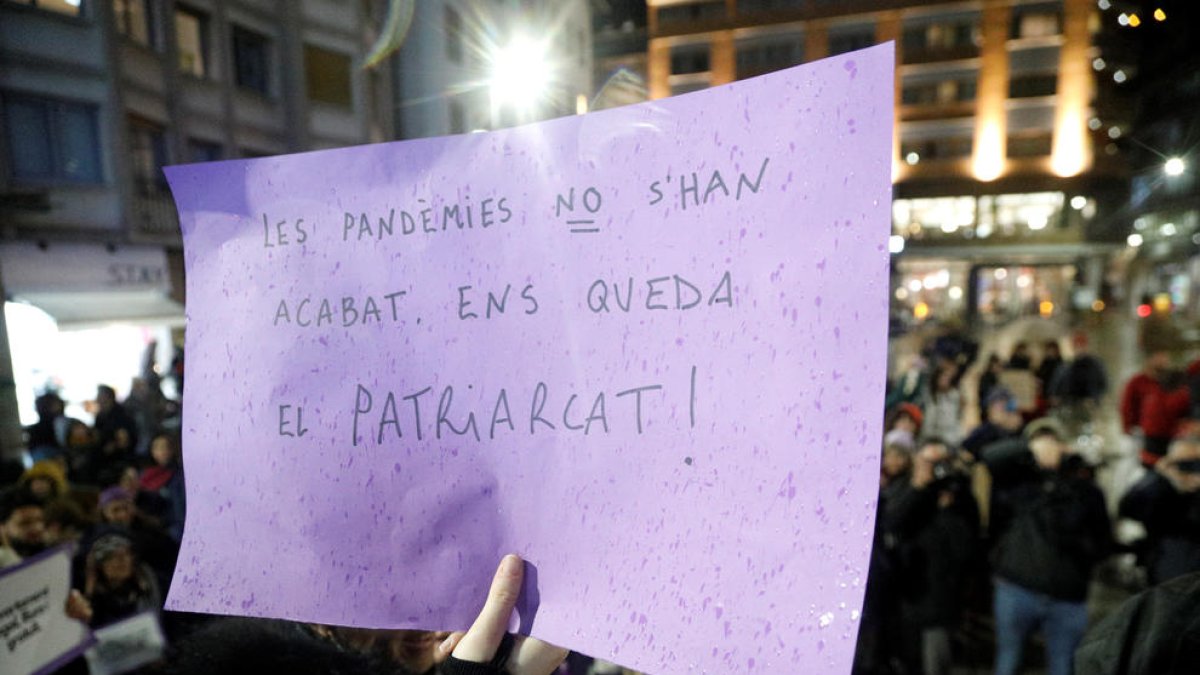 LES PANDÈMIES NO S'HAN
ACABAT. ENS QUEDA
EL PATRIARCAT!
STAY